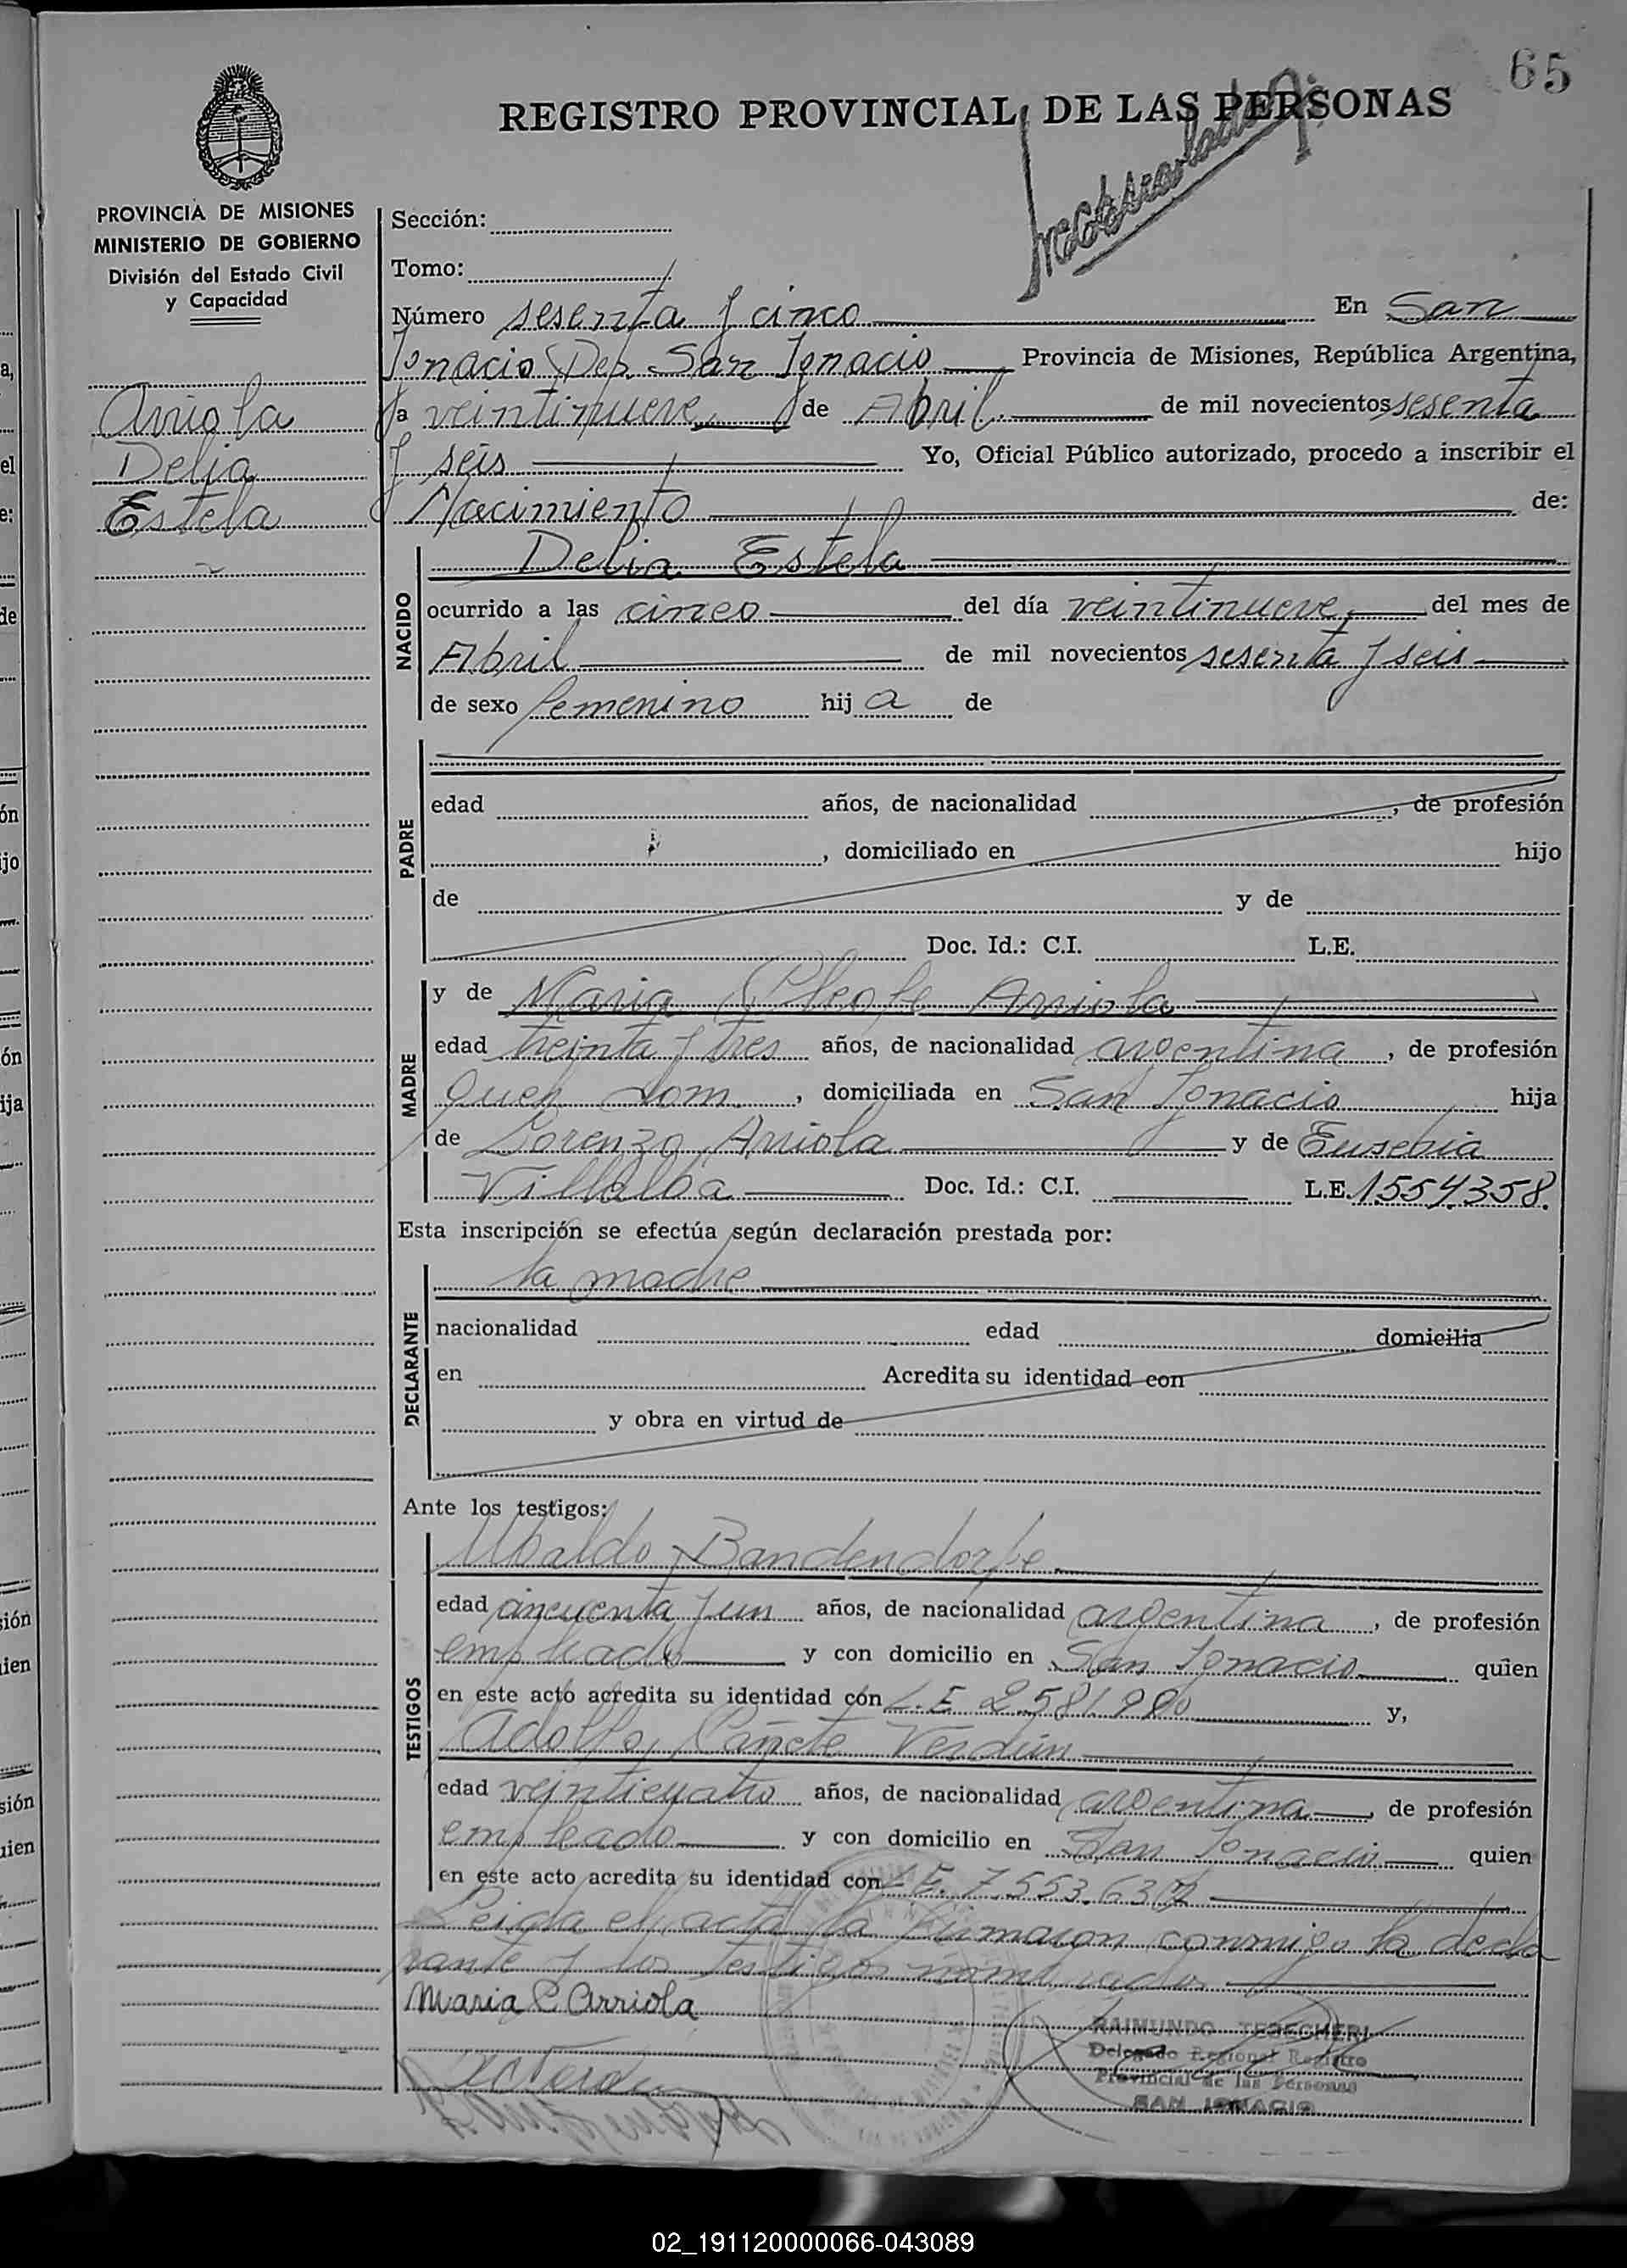 65
REGISTRO PROVINCIAL DE LAS PERSONAS
PROVINCIA DE MISIONES
MINISTERIO DE GOBIERNO
División del Estado Civil
y Capacidad
Arriola
Delia
Estela
Sección:
Tomo:
Número sesenta y cinco En San
Ignacio Dep. San Ignacio Provincia de Misiones, República Argentina,
a veintinueve de Abril de mil novecientos sesenta
y seis Yo, Oficial Público autorizado, procedo a inscribir el
Nacimiento de:
NACIDO
Delia Estela
ocurrido a las cinco del día veintinueve del mes de
Abril de mil novecientos sesenta y seis
de sexo femenino hij a de
PADRE
edad años, de nacionalidad , de profesión
, domiciliado en hijo
de y de
Doc. Id.: C.I. L.E.
MADRE
y de Maria Cleofe Arriola
edad treinta y tres años, de nacionalidad argentina , de profesión
Queh dom. , domiciliada en San Ignacio hija
de Lorenzo Arriola y de Eusebia
Villalba Doc. Id.: C.I. L.E. 1.554.358.
Esta inscripción se efectúa según declaración prestada por:
DECLARANTE
la madre
nacionalidad edad domicilia
en Acredita su identidad con
y obra en virtud de
Ante los testigos:
TESTIGOS
Ubaldo Bandendorfe
edad cincuenta y un años, de nacionalidad argentina , de profesión
empleado y con domicilio en San Ignacio quien
en este acto acredita su identidad con L.E. y,
Adolfo Cañete Verdún
edad veinticuatro años, de nacionalidad argentina , de profesión
empleado y con domicilio en San Ignacio quien
en este acto acredita su identidad con L.E.
Leida el acta la firmaron conmigo la decla
rante y los testigos nombrados
Maria C. Arriola
RAIMUNDO TESEGHERI
Delegado Regional Registro
Provincial de las Personas
SAN IGNACIO
02_191120000066-043089